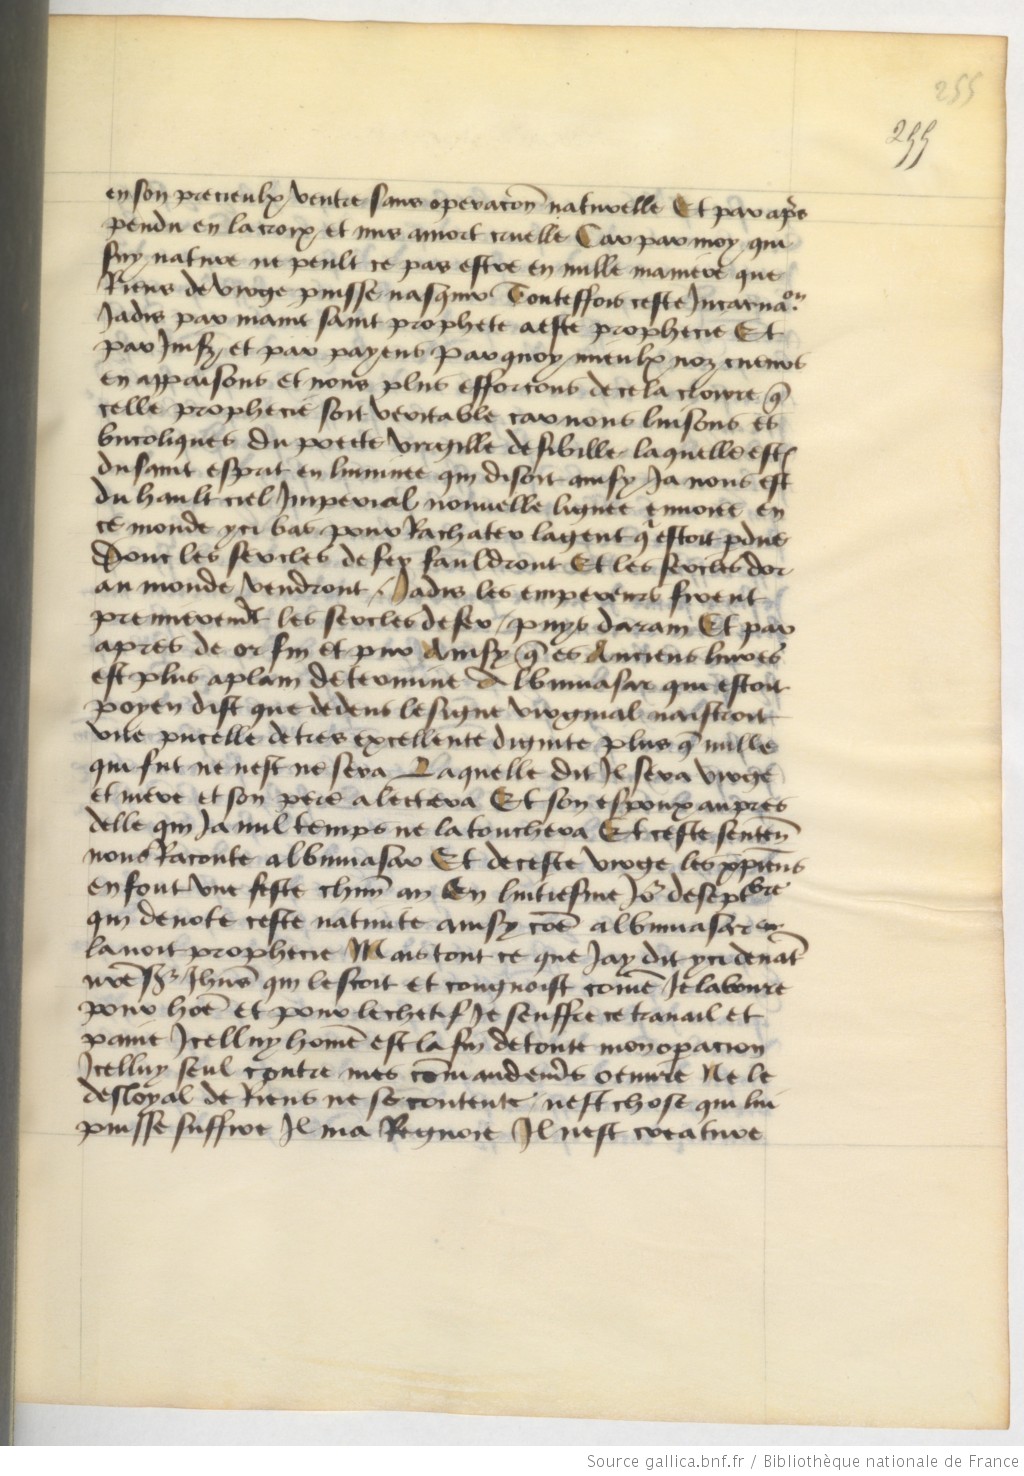 255
255
en son precieulx ventre sans operacõn naturelle Et par ap̃s
pendu en la croix / et mis a mort cruelle Car par moy qui
suy nature ne peult ce pas estre en nulle maniere que
Riens de virge puisse nasquir Touteffois ceste Incarnaon
Jadis par maint saint prophete a este prophecie Et
par Juifz / et par payens Par quoy mieulx noz cuers
en appaisons et nous plus efforcons de ce la croire q̃
celle prophecie soit veritable car nous luisons es
bucoliques du poete virgille de sibille laquelle est
du saint esprit en luminee qui disoit ainsy Ja nous est
du hault ciel Imperial nouvelle lignee envoiee en
ce monde yci bas pour Rachater la gent q̃ estoit pdue
Donc les sercles de fer fauldront Et les sercles dor
au monde vendront / Jadis les empereurs firent
premieremt les sercles de fer / puys daram Et par
apres de or fin et pur Ainsy q̃ es Anciens livres
est plus a plain determine Albumasar qui estoit
poyen dist que dedens le signe virginal naistroit
une pucelle de tres excellente dignite plus q̃ nulle
qui fut ne nest ne sera Laquelle dit Il sera virge
et mere et son pere alectera Et son espoux aupres
delle qui Ja nul temps ne la touchera Et ceste sentẽ
nous Raconte albumasar Et de ceste virge les xpiẽns
en font une feste chũn an En luitiesme Jo de septbre
qui denote ceste nativite ainsy cõe albumasar en
lavoit prophecie Mais tout ce que Jay dit yci de nat
Jhũs qui le scoit et congnoist cõmẽ Je laboure
pour hõe et pour le chetif Je seuffre ce travail et
paine Jcelluy homẽ est la fin de toute mon opacion
Jcelluy seul contre mes cõmandemẽs oeuvre Ne le
desloyal de Riens ne se contente / nest chose qui lui
puisse suffire Il ma Regnoie Il nest creature
Source gallica.bnf.fr / Bibliothèque nationale de France